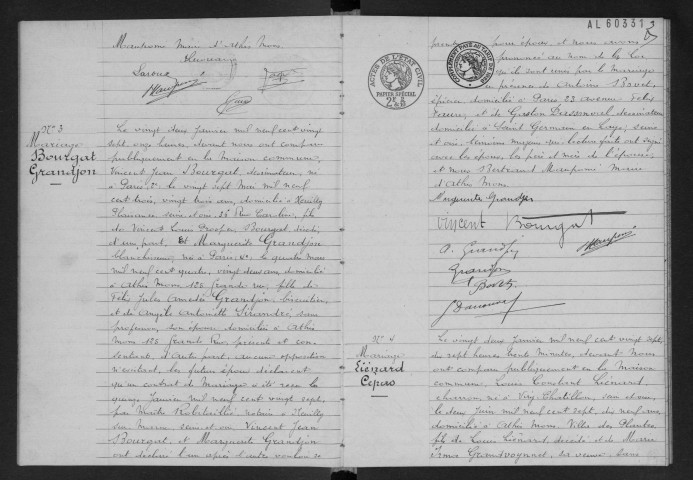 Maupomé Maire d'Athis Mons
N° 3
Mariage
Bourgat
Grandjon
Le vingt deux janvier mil neuf cent vingt
sept, onze heures, devant nous ont comparu
publiquement en la maison commune,
Vincent Jean Bourgat, dessinateur, né
à Paris, le vingt sept Mai mil neuf
cent trois, vingt trois ans, domicilié à Neuilly
Plaisance seine et oise, 26 Rue Caroline, fils
de Vincent Louis Prosper Bourgat décédé,
d'une part. Et Marguerite Grandjon
blanchisseuse, née à Paris, le quatre Mars
mil neuf cent quatre, vingt deux ans, domiciliée
à Athis Mons 128 grande rue, fille de
Félix Jules Amédé Grandjon
et de Angèle Antoinette, sans
profession, son épouse domiciliés à Athis
Mons 128 Grande Rue, présents et con-
sentants, d'autre part, aucune opposition
n'existant, les futurs époux déclarent
qu'un contrat de Mariage a été reçu le
quinze Janvier mil neuf cent vingt sept,
par Maître notaire à Neuilly
sur Marne seine et oise. Vincent Jean
Bourgat, et Marguerite Grandjon
ont déclaré l'un après l'autre vouloir se
AL 603313
ACTES DE L'ÉTAT CIVIL
PAPIER SPÉCIAL
prendre pour époux et nous avons
prononcé au nom de la Loi
qu'ils sont unis par le Mariage
en présence de Antoine
épicier domicilié à Paris 23 avenue Félix
Faure, et de Gaston dessinateur
domicilié à Saint Germain en Laye, seine
et oise, témoins majeurs qui lecture faite ont signé
avec les époux, les père et mère de l'épouse,
et nous Bertrand Maupomé Maire
d'Athis Mons
Marguerite Grandjon
Vincent Bourgat
Grandjon
N° 4
Mariage
Liénard
Le vingt deux janvier mil neuf cent vingt sept,
dix sept heures trente minutes, devant Nous
ont comparu publiquement en la Maison
commune, Louis Constant Liénard,
charron, né à Viry Chatillon, seine et oise,
le deux Juin mil neuf cent sept, dix neuf ans,
domicilié à Athis Mons, Villa des Plantes,
fils de Louis Liénard, décédé et de Marie
Irma, sa veuve, sans